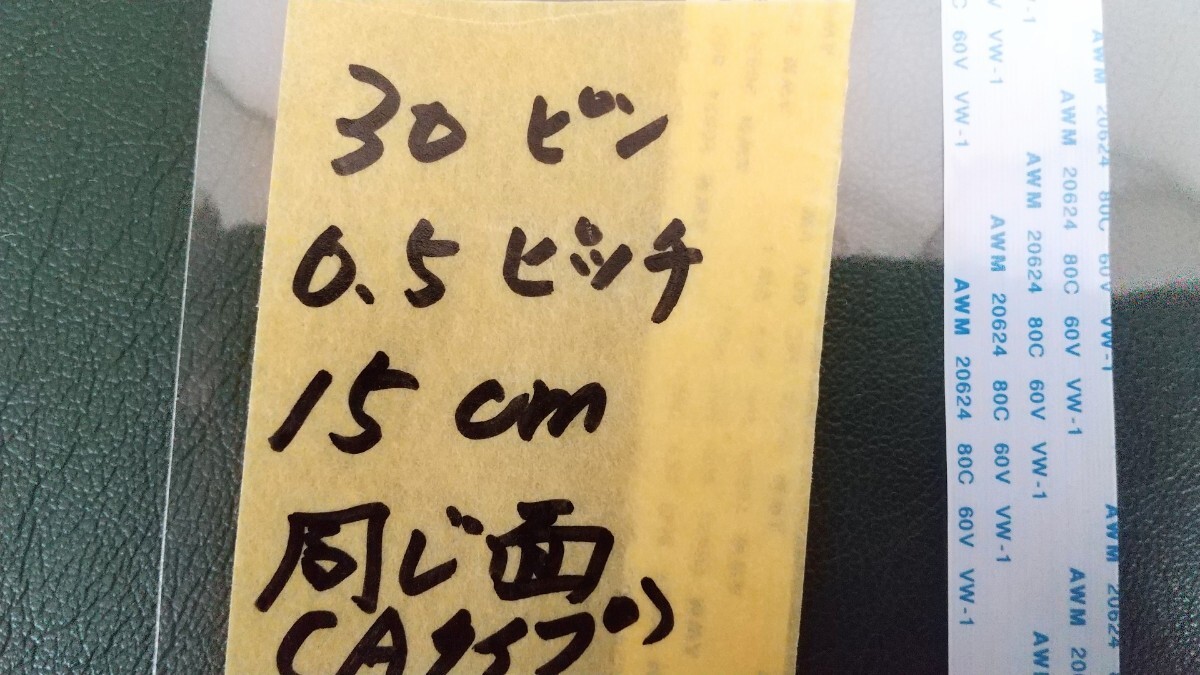 30 ピン
0.5 ピッチ
15 cm
同じ面
(Aタイプ)
C 60V VW-1
V VW-1
-1
AWM 20624 80C 60V VW-1
AWM 20624 80C 60V VW-1
AWM 20624 80C 60V VW-1
AWM 20624 80C 60V VW-1
AWM 20624 80C 60V VW-1
AWM 20624
AWM 20
AW